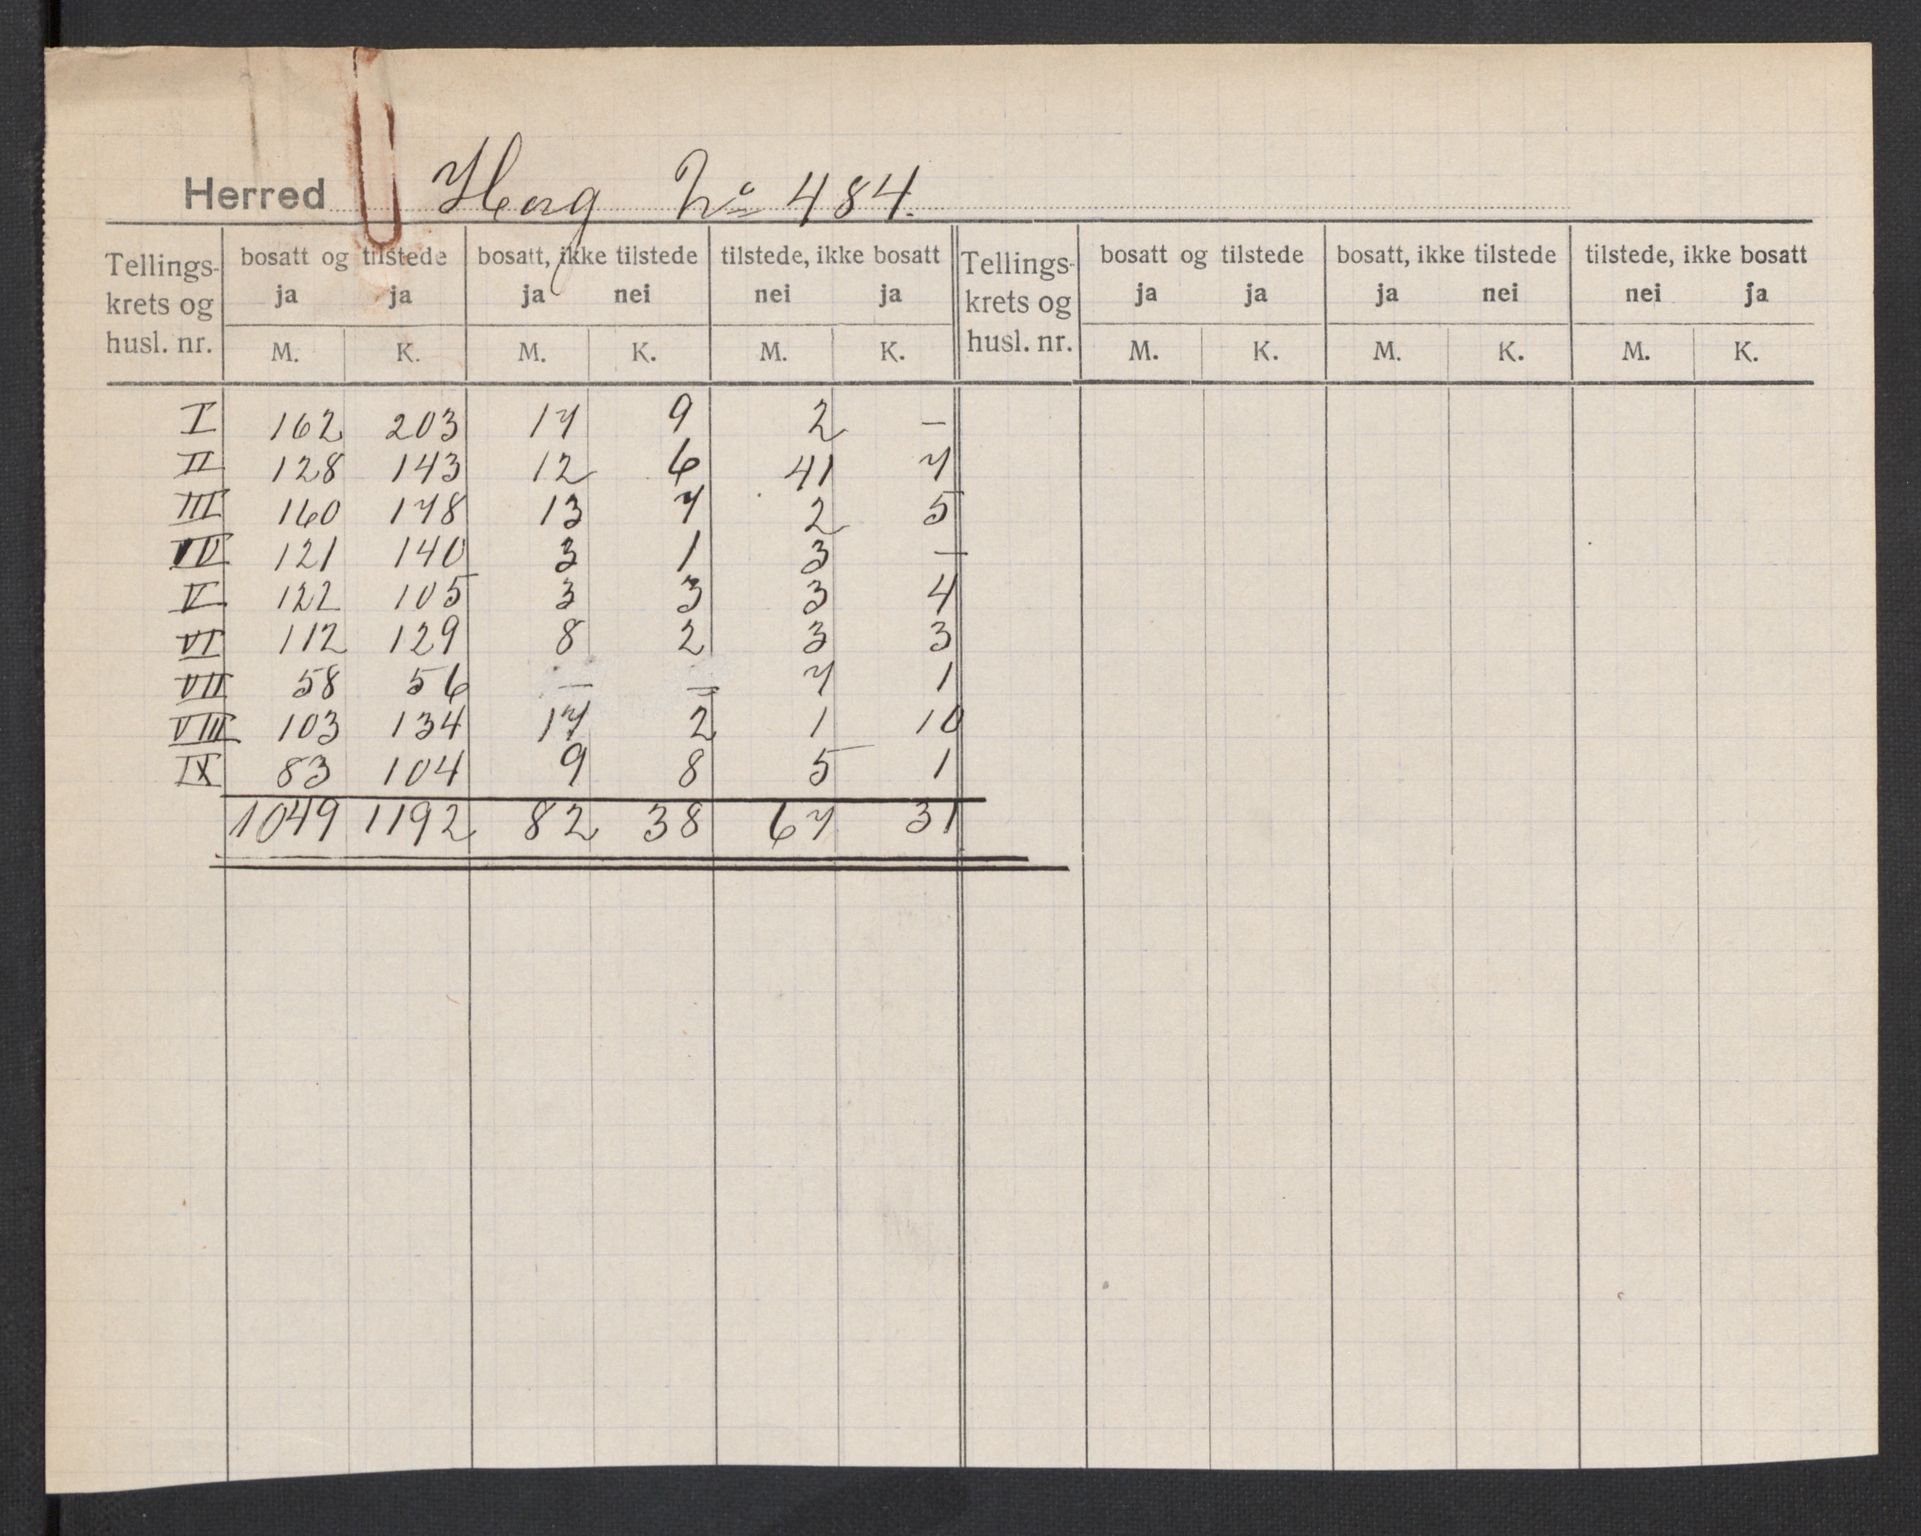 Herred Horg No 484.
Tellings- krets og husl. nr. | bosatt og tilstede ja ja | bosatt, ikke tilstede ja nei | tilstede, ikke bosatt nei ja | Tellings- krets og husl. nr. | bosatt og tilstede ja ja | bosatt, ikke tilstede ja nei | tilstede, ikke bosatt nei ja
M. K. M. K. M. K. M. K. M. K. M. K.
I 162 203 17 9 2 —
II 128 143 12 6 41 7
III 160 178 13 7 2 5
IV 121 140 3 1 3 —
V 122 105 3 3 3 4
VI 112 129 8 2 3 3
VII 58 56 — — 7 1
VIII 103 134 17 2 1 10
IX 83 104 9 8 5 1
1049 1192 82 38 67 31